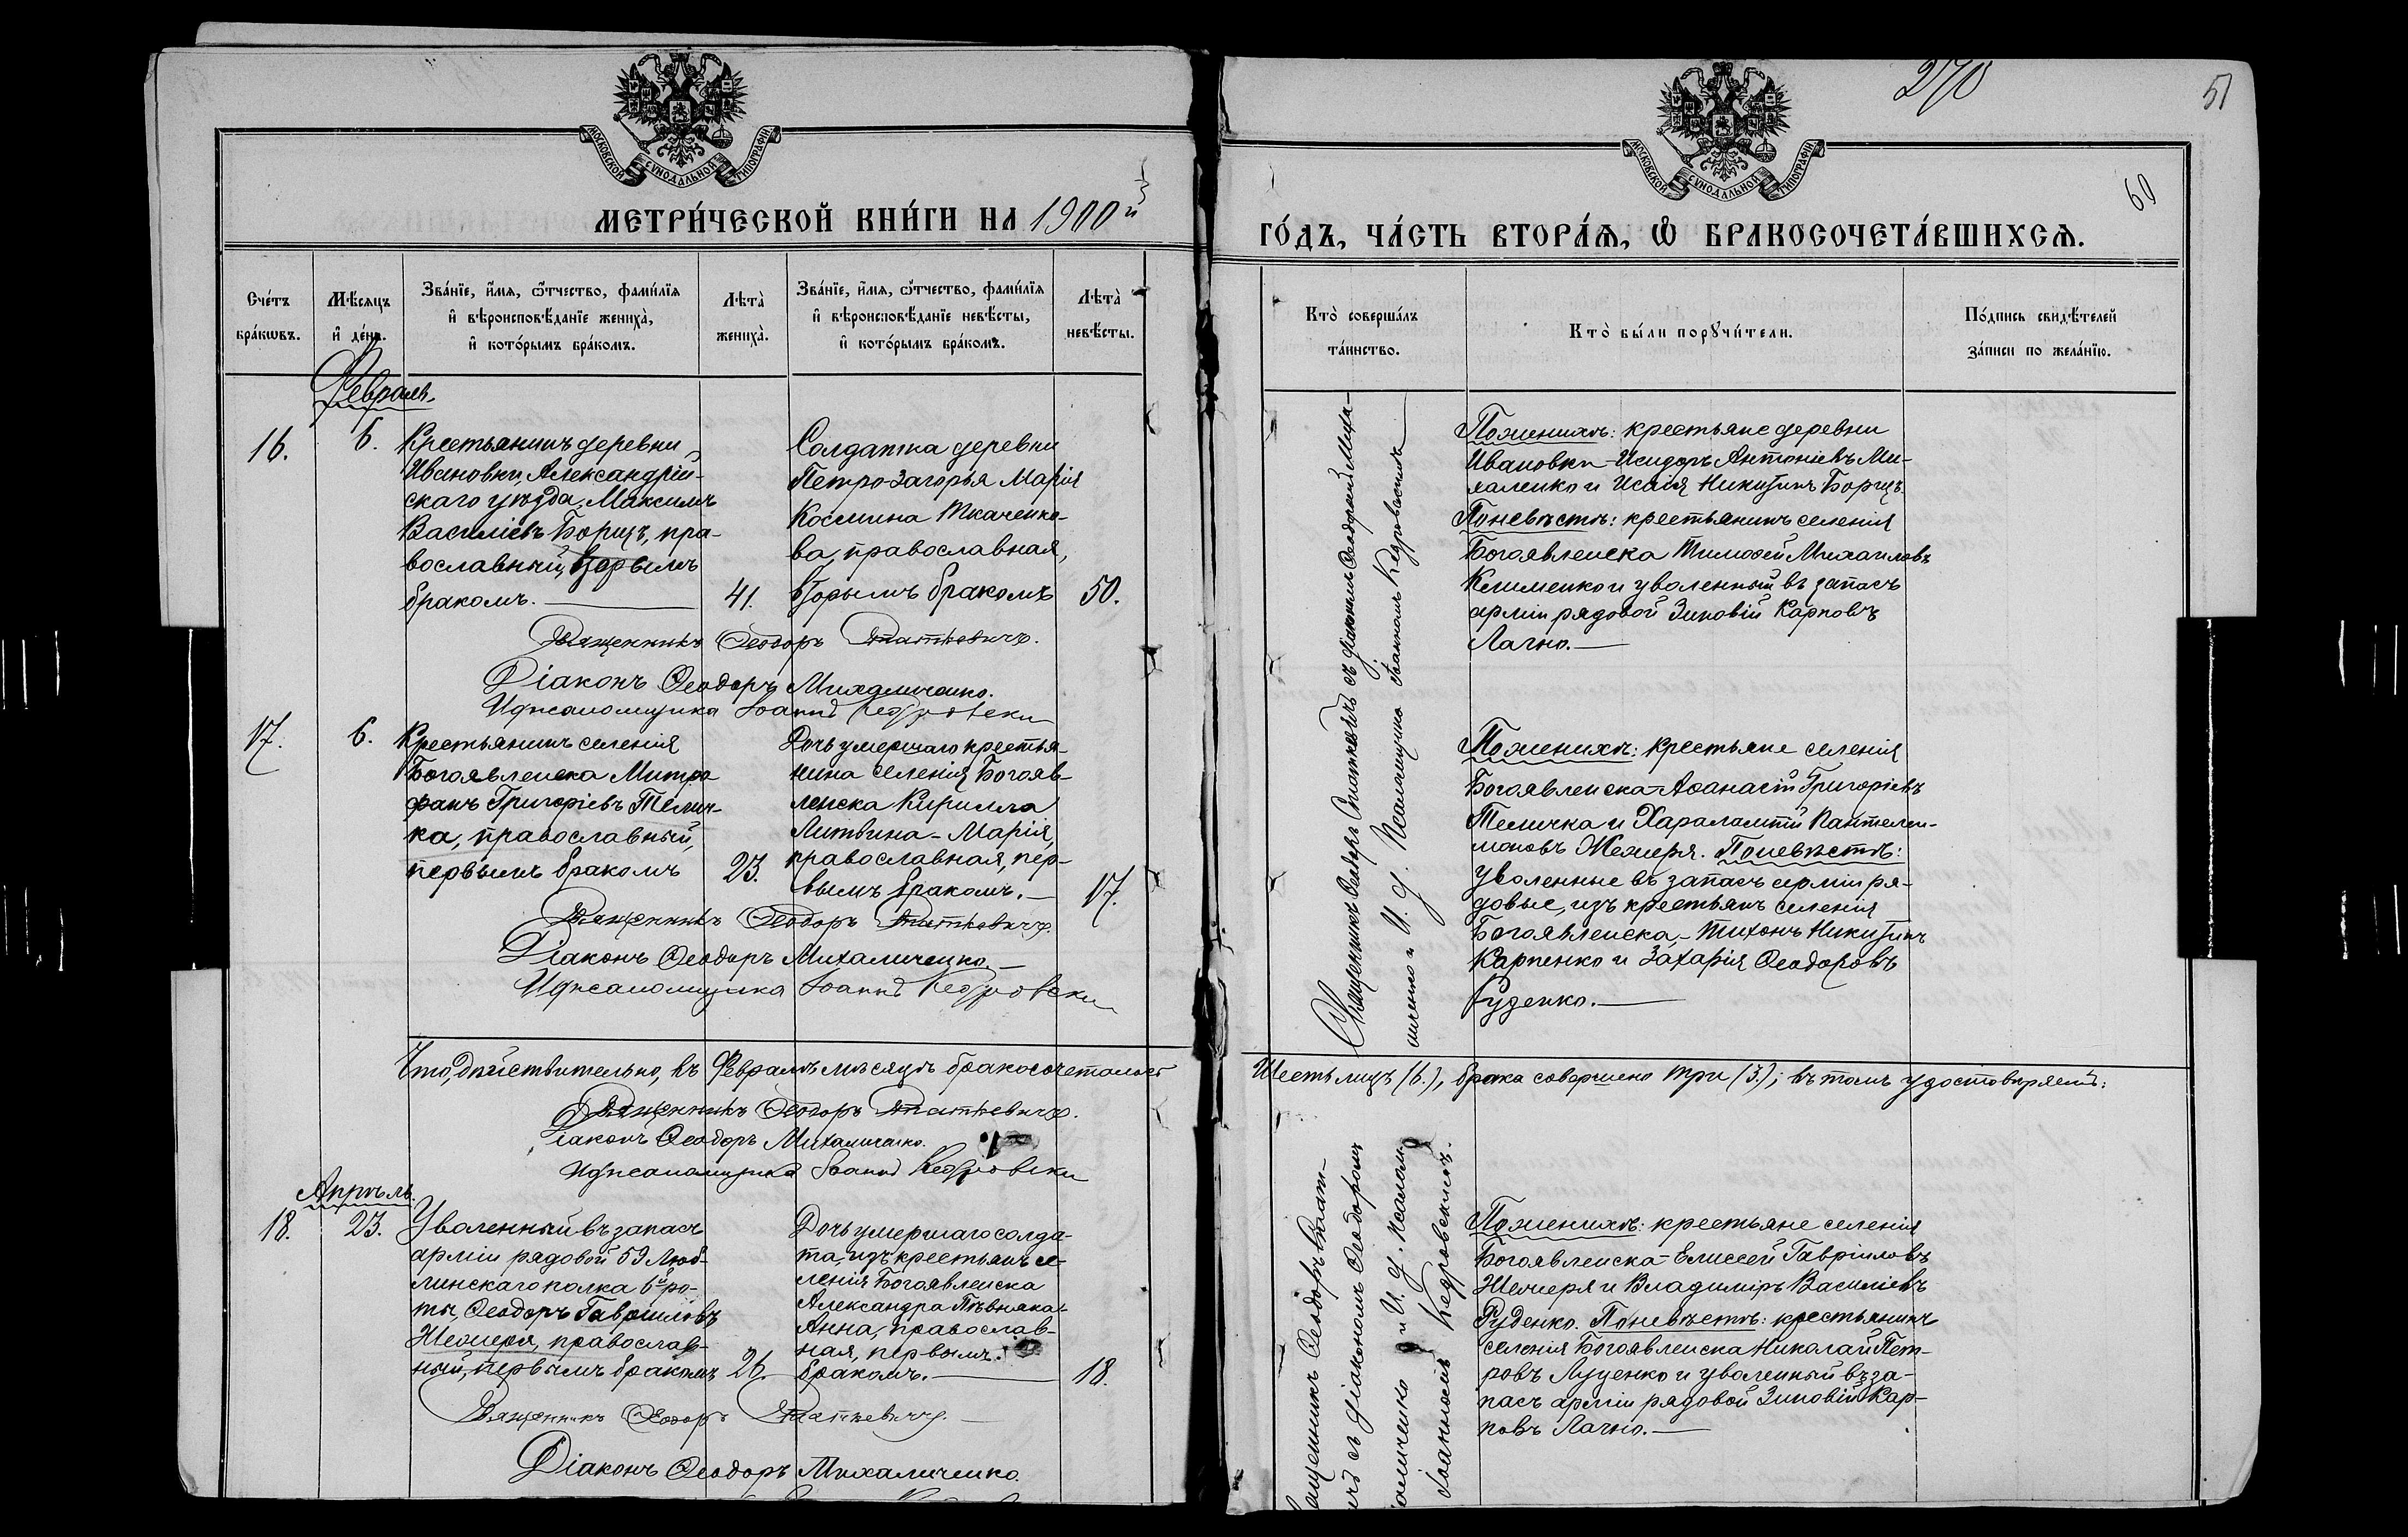 МОСКОВСКОЙ СѴНОДАЛЬНОЙ ТИПОГРАФІИ
МЕТРИ́ЧЕСКОЙ КНИ́ГИ НА 1900й
Сче́тъ
бра́кѡвъ.
Мѣ́сяцъ
и҆ де́нь.
Зва́нїе, и҆́мя, ѻ҆́тчество, фами́лїя
и҆ вѣроисповѣ́данїе жениха̀,
и҆ кото́рымъ бра́комъ.
Лѣта̀
жениха̀.
Зва́нїе, и҆́мя, ѻ҆́тчество, фами́лїя
и҆ вѣроисповѣ́данїе невѣ́сты,
и҆ кото́рымъ бра́комъ.
Лѣта̀
невѣ́сты.
Февраль.
16.
6.
Крестьянинъ деревни
Ивановки, Александрій-
скаго уѣзда, Максимъ
Василіевъ Борщъ, пра-
вославный, вторымъ
бракомъ.
41.
Солдатка деревни
Петро-Загорья Марія
Космина Ткаченко-
ва, православная,
вторымъ бракомъ
50.
Священникъ Ѳеодоръ
Діаконъ Ѳеодоръ Михаличенко.
И д псаломщика Іоаннъ Кедровскій
17.
6.
Крестьянинъ селенія
Богоявленска Митро-
фанъ Григоріевъ Телич-
ка, православный,
первымъ бракомъ
23.
Дочь умершаго крестья-
нина селенія Богояв-
ленска Кирилла
Литвина - Марія,
православная, пер-
вымъ бракомъ.
17.
Священникъ Ѳеодоръ
Діаконъ Ѳеодоръ Михаличенко.
И д псаломщика Іоаннъ Кедровскій
Что, дѣйствительно, въ Февралѣ мѣсяцѣ бракосочеталось
Священникъ Ѳеодоръ
Діаконъ Ѳеодоръ Михаличенко.
И д псаломщика Іоаннъ Кедровскій
Апрѣль.
18.
23.
Уволенный въ запасъ
арміи рядовой 59 Люб-
линскаго полка 6й ро-
ты, Ѳеодоръ Гавріиловъ
Жемеря, православ-
ный, первымъ бракомъ
26.
Дочь умершаго солда-
та, изъ крестьянъ се-
ленія Богоявленска
Александра Пѣвняка -
Анна, православ-
ная, первымъ
бракомъ.
18.
Священникъ Ѳеодоръ
Діаконъ Ѳеодоръ Михаличенко.
270
51
60
МОСКОВСКОЙ СѴНОДАЛЬНОЙ ТИПОГРАФІИ
ГО́ДЪ, ЧА́СТЬ ВТОРА́Ѧ, Ѽ БРАКОСОЧЕТА́ВШИХСѦ.
Кто̀ соверша́лъ
та́инство.
Кто̀ бы́ли порꙋчи́тели.
По́дпись свидѣ́телей
за́писи по жела́нїю.
Священникъ Ѳеодоръ съ діакономъ Ѳеодоромъ Миха-
личенко и И. д. Псаломщика Іоанномъ Кедровскимъ
По женихѣ: крестьяне деревни
Ивановки - Исидоръ Антоніевъ Ми-
халенко и Исаія Никитинъ Борщъ.
По невѣстѣ: крестьянинъ селенія
Богоявленска Тимоѳей Михаиловъ
Клименко и уволенный въ запасъ
арміи рядовой Зиновій Карповъ
Лагно.
По женихѣ: крестьяне селенія
Богоявленска - Аѳанасій Григоріевъ
Теличка и Харалампій Пантелеи-
моновъ Жемеря. По невѣстѣ:
уволенные въ запасъ арміи ря-
довые, изъ крестьянъ селенія
Богоявленска, - Тихонъ Никитинъ
Карпенко и Захарія Ѳеодоровъ
Руденко.
Шесть лицъ (6.), брака совершено три (3.); въ томъ удостовѣряемъ:
Священникъ Ѳеодоръ
съ Діакономъ Ѳеодоромъ
Михаличенко и И. д. Псалом
Іоанномъ Кедровскимъ.
По женихѣ: крестьяне селенія
Богоявленска - Елиссей Гавріиловъ
Жемеря и Владиміръ Василіевъ
Руденко. По невѣстѣ: крестьянинъ
селенія Богоявленска Николай Пет-
ровъ Луценко и уволенный въ за-
пасъ арміи рядовой Зиновій Кар-
повъ Лагно.